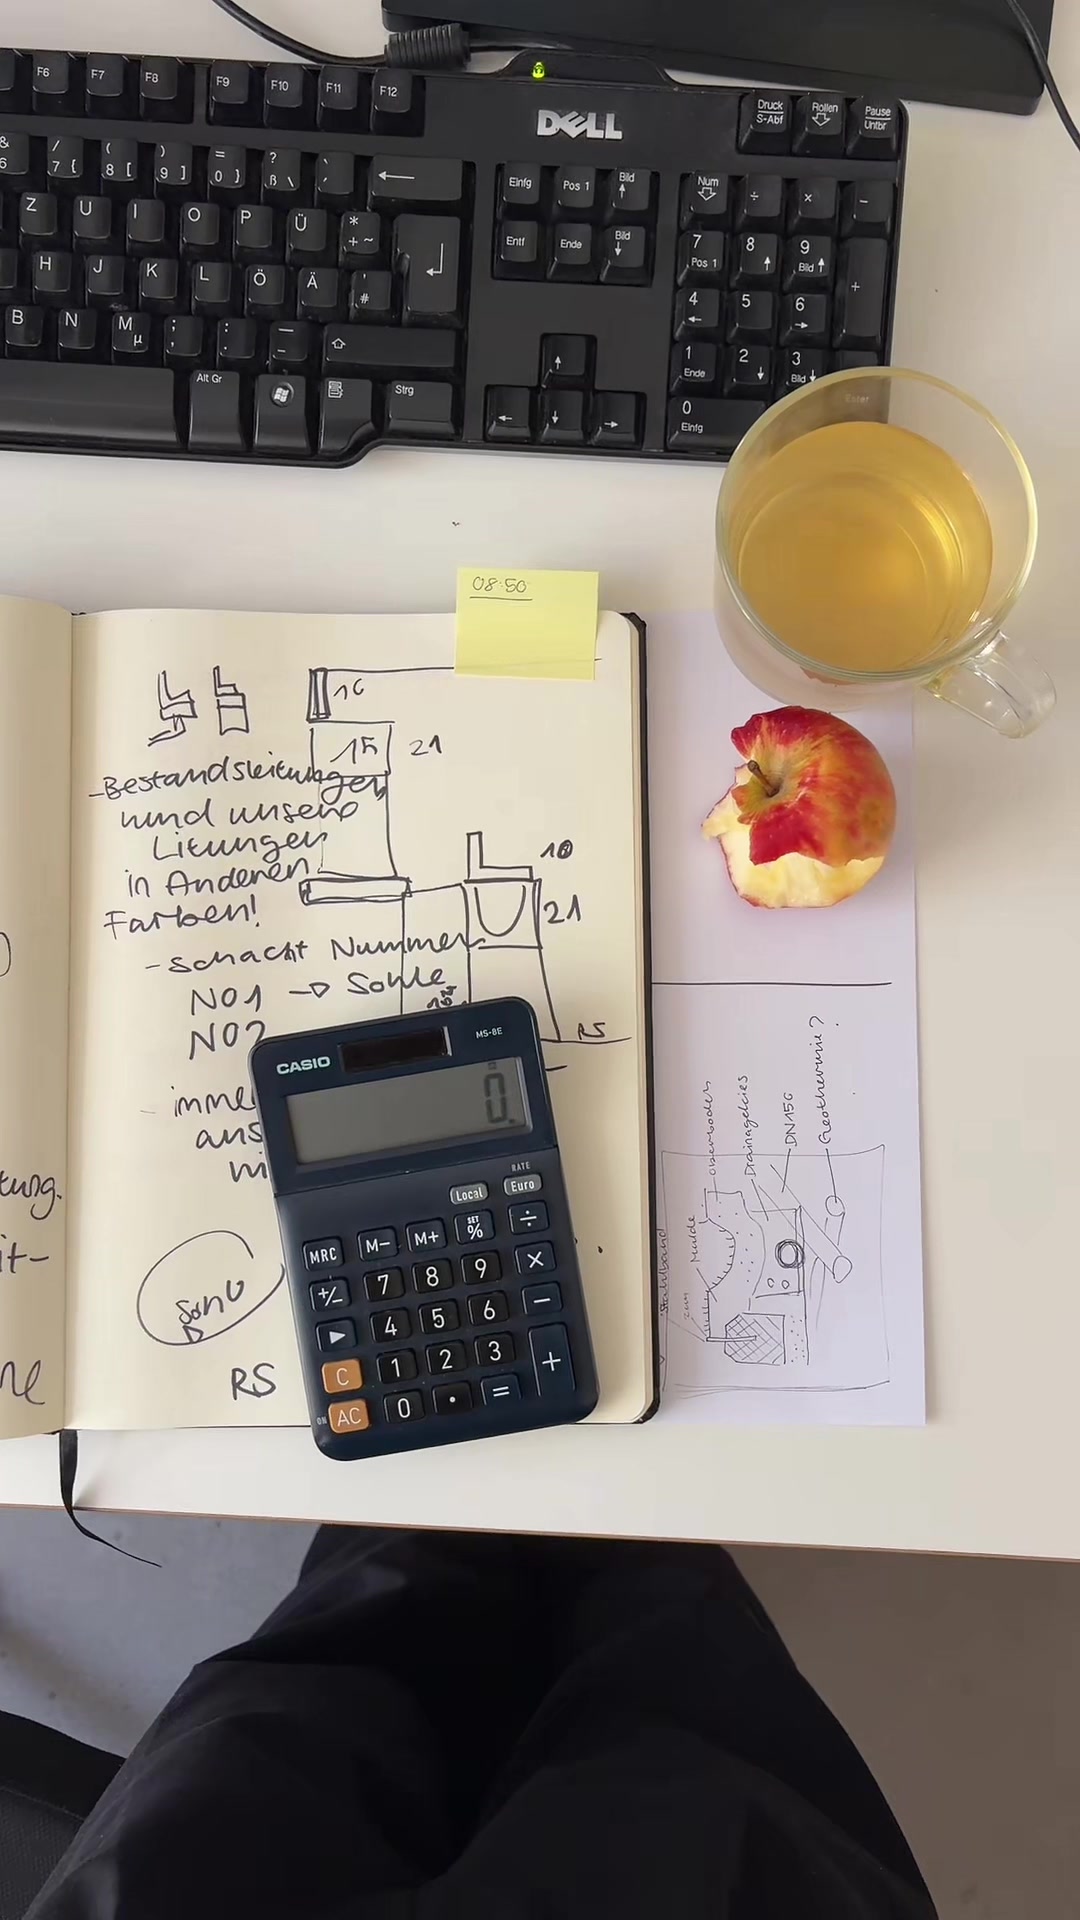 F6 F7 F8 F9 F10 F11 F12
DELL
Druck
S-Abf
Rollen
Pause
Untbr
&
6
/
7 {
(
8 [
)
9 ]
=
0 }
?
ß \
Einfg
Pos 1
Bild
Num
÷
×
−
Z U I O P Ü
*
+ ~
Entf
Ende
Bild
7
Pos 1
8
9
Bild
+
H J K L Ö Ä
'
#
4
5
6
B N M
µ
;
,
:
.
1
Ende
2
3
Bild
Alt Gr
Strg
0
Einfg
Enter
08:50
16
15 21
-Bestandsleitungen
und unsere
Litungen
in Anderen
Farben!
10
21
- Schacht Nummer
N01 → Sohle
N02
RS
imme
aus
ni
tung.
it-
ne
RS
CASIO
MS-8E
0.
RATE
Local
Euro
MRC
M−
M+
SET
%
÷
+/−
7
8
9
×
▶
4
5
6
−
C
1
2
3
+
ON
AC
0
.
=
Stahlband
Mulde
Oberboden
Drainagekies
DN150
Geothermie?